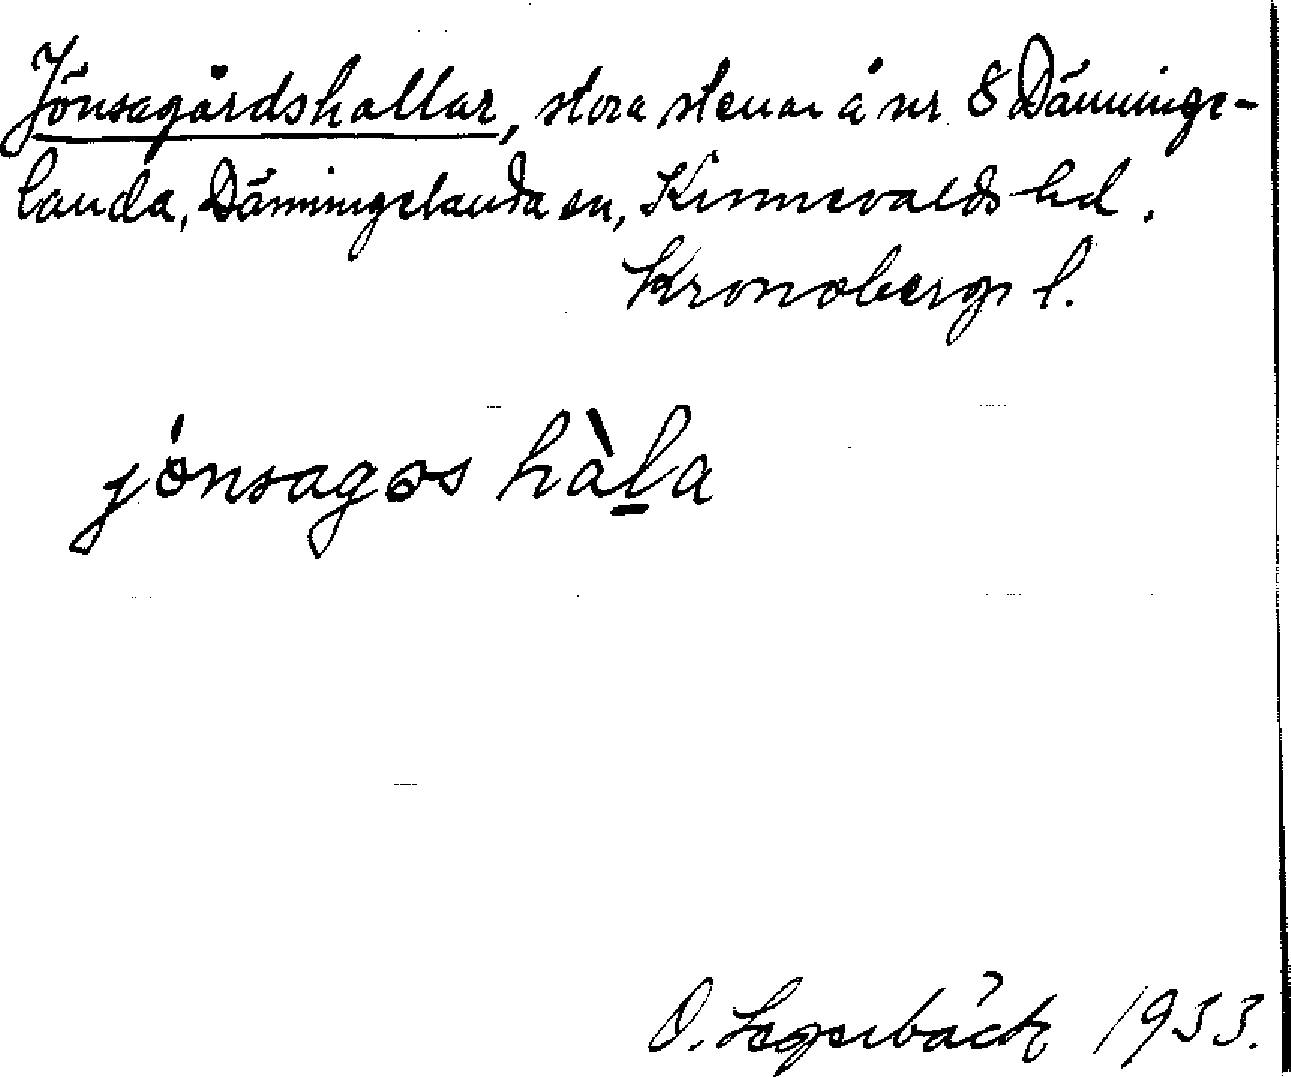 Jönsagårdshallar, stora stenar å nr 8 Dänninge-
landa, Dänningelanda sn, Kinnevalds hd.
Kronobergs l.
jönsagos hàla
O. Lagerbäck 1933.